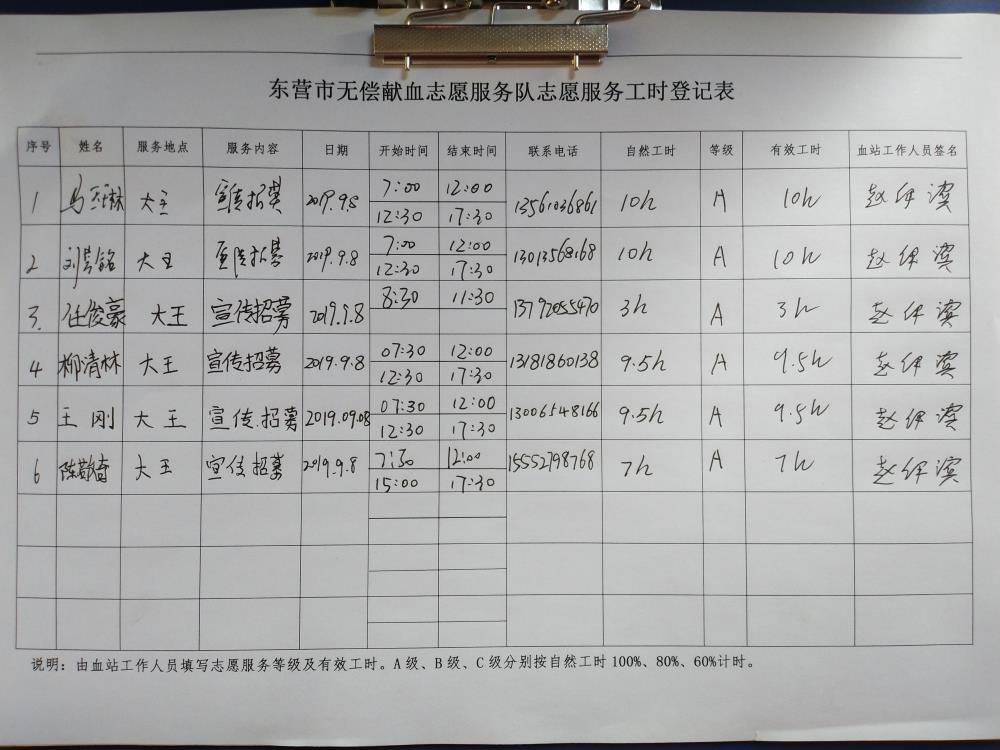 东营市无偿献血志愿服务队志愿服务工时登记表
序号 姓名 服务地点 服务内容 日期 开始时间 结束时间 联系电话 自然工时 等级 有效工时 血站工作人员签名
1 大王 宣传招募 2019.9.8 7:00 12:00 13561036861 10h A 10h
12:30 17:30
2 大王 宣传招募 2019.9.8 7:00 12:00 13013568168 10h A 10h
12:30 17:30
3. 任俊豪 大王 宣传招募 2019.9.8 8:30 11:30 13792055470 3h A 3h
4 柳清林 大王 宣传招募 2019.9.8 07:30 12:00 13181860138 9.5h A 9.5h
12:30 17:30
5 王刚 大王 宣传招募 2019.09.08 07:30 12:00 13006548166 9.5h A 9.5h
12:30 17:30
6 大王 宣传招募 2019.9.8 7:30 12:00 15552798768 7h A 7h
15:00 17:30
说明：由血站工作人员填写志愿服务等级及有效工时。A级、B级、C级分别按自然工时100%、80%、60%计时。